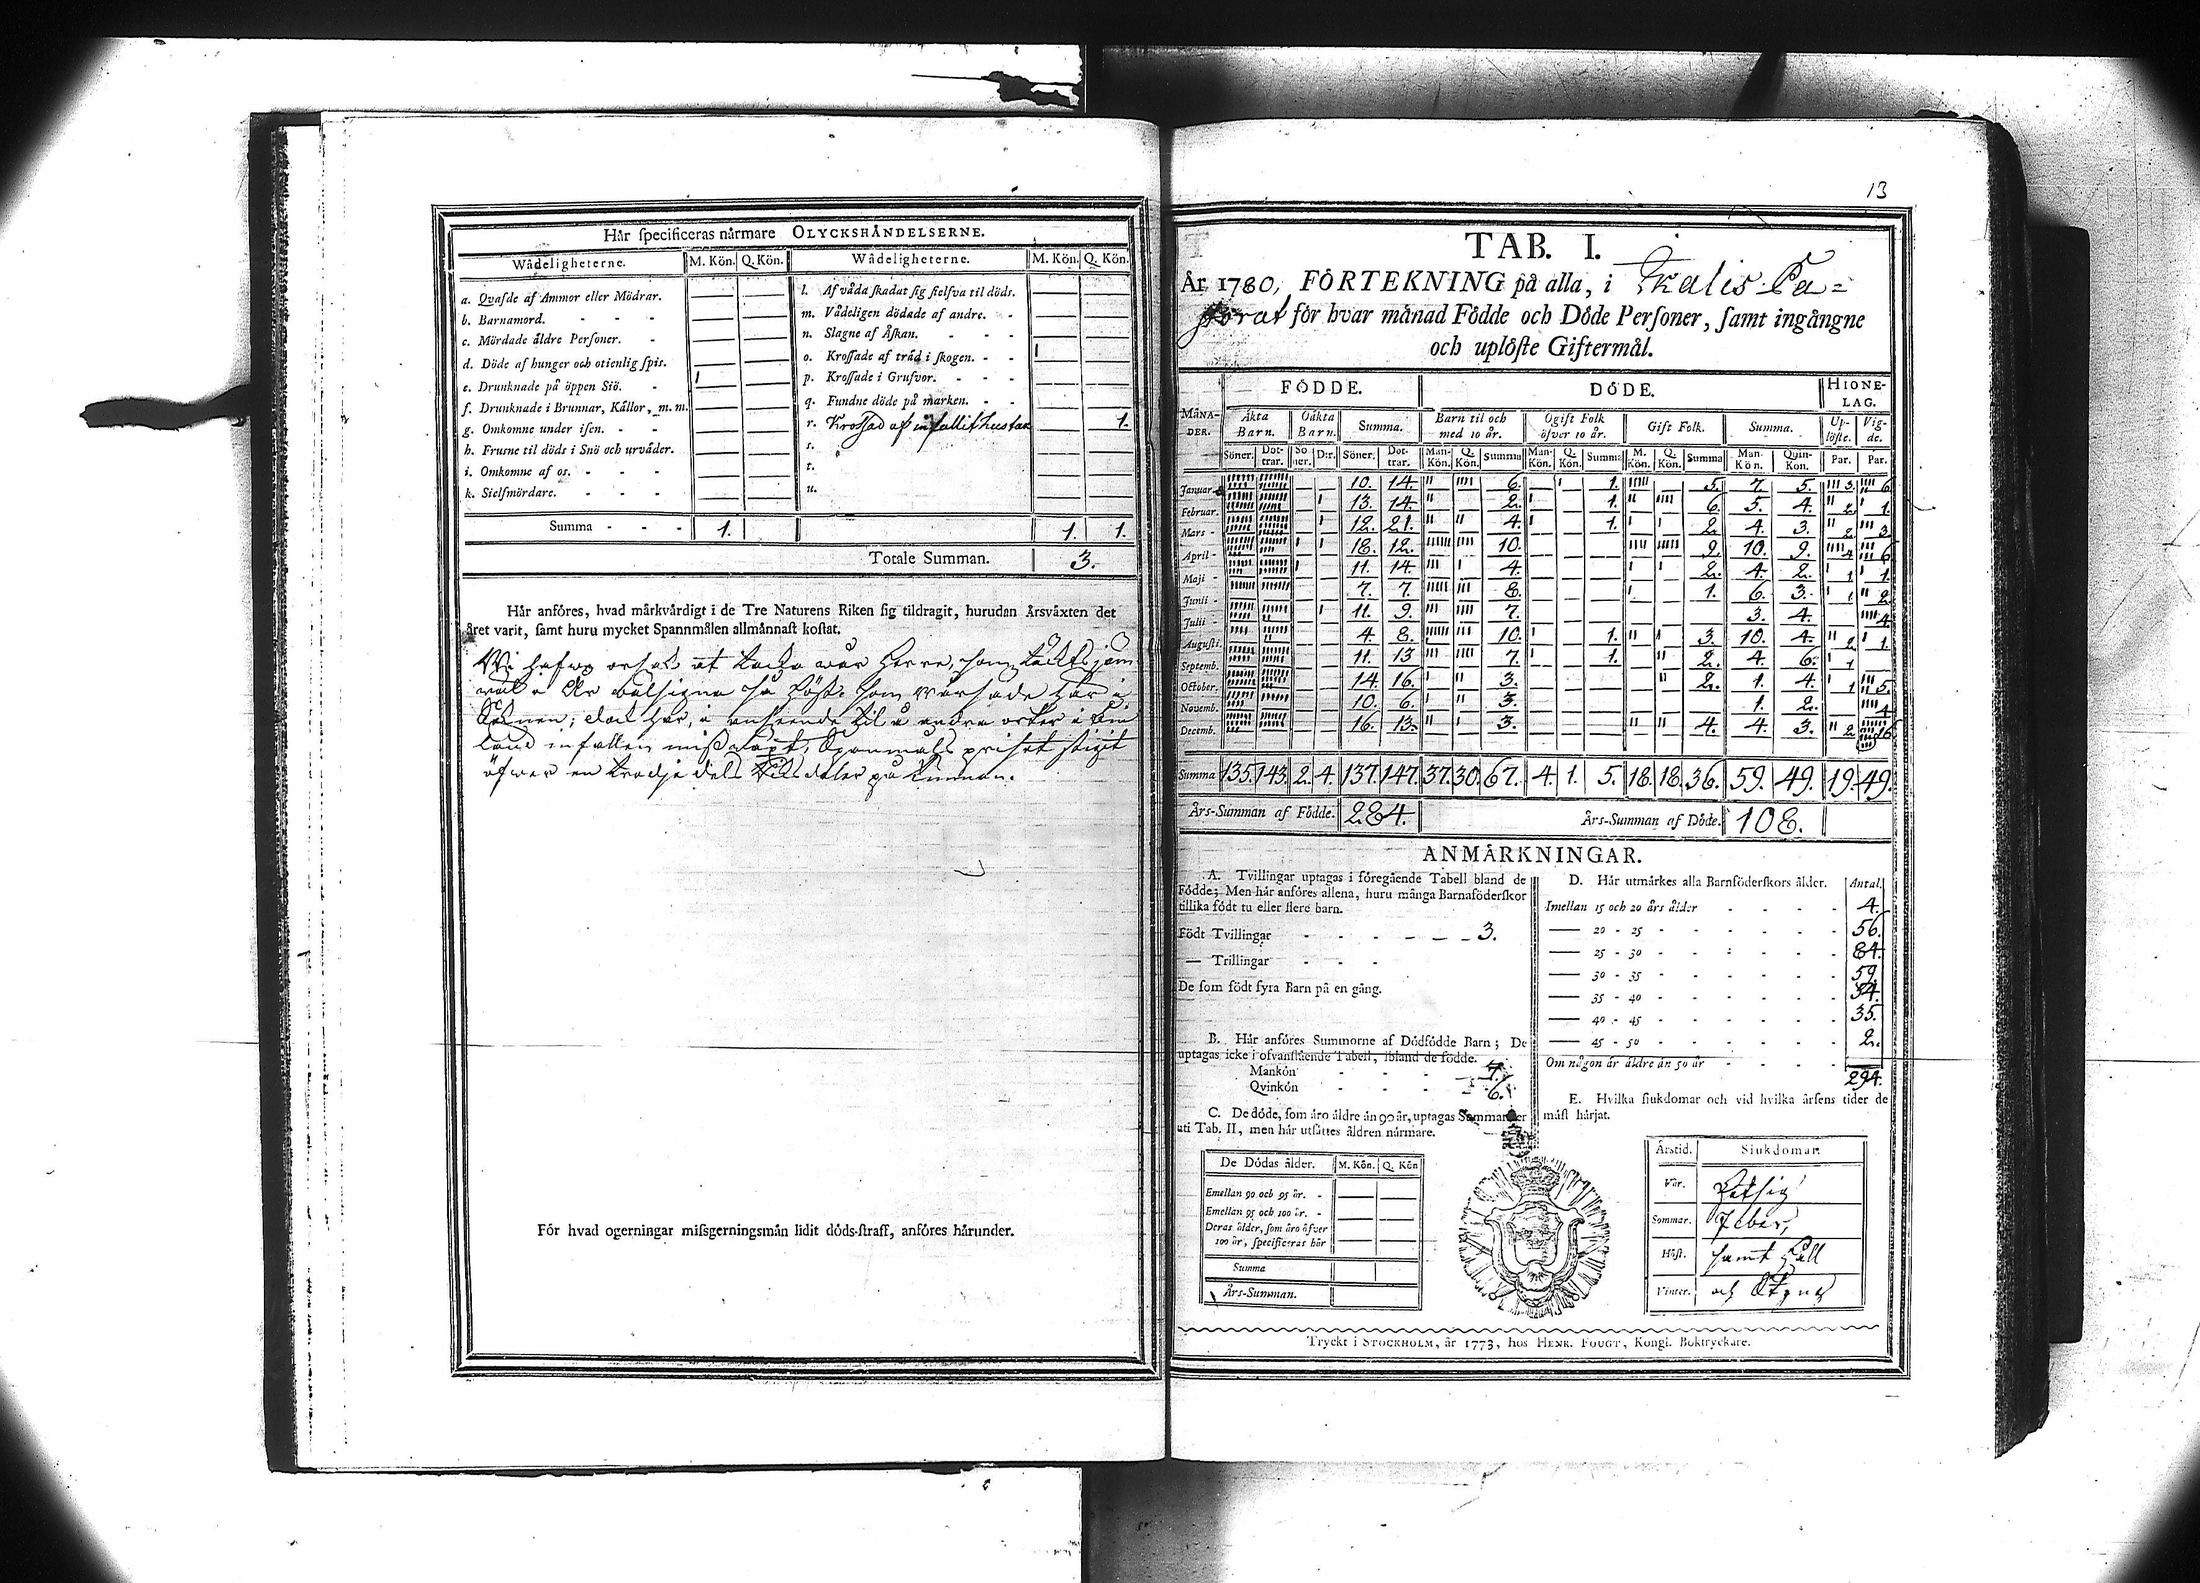 Här specificeras närmare OLYCKSHÄNDELSERNE.
Wådeligheterne. M. Kön. Q. Kön. Wådeligheterne. M. Kön. Q. Kön.
a. Qvafde af Ammor eller Mödrar.
b. Barnamord. - - -
c. Mördade äldre Personer. -
d. Döde af hunger och otienlig spis.
e. Drunknade på öppen Siö. - 1
f. Drunknade i Brunnar, Källor, m. m.
g. Omkomne under isen. - -
h. Frusne til döds i Snö och urväder.
i. Omkomne af os. - - -
k. Sielfmördare. - - -
l. Af våda skadat sig sielfva til döds.
m. Vådeligen dödade af andre. -
n. Slagne af Åskan. - - -
o. Krossade af träd i skogen. - - 1
p. Krossade i Grufvor. - - -
q. Fundne döde på marken. - -
r. Krossad af infallit hustak 1.
s.
t.
u.
Summa - - - 1. 1. 1.
Totale Summan. 3.
Här anföres, hvad märkvärdigt i de Tre Naturens Riken sig tildragit, hurudan årsväxten det
året varit, samt huru mycket Spannmålen allmännast kostat.
Wi hafwa orsak at tacka wår Herre, som täckts jäm
wäl i År wälsigna så Höst- som Wårsäde här i
Socknen; dock har, i anseende til å andra orter i Fin
land infallen misswäxt, Spanmåls priset stigit
öfwer en tredje dels Riksdaler på tunnan.
För hvad ogerningar missgerningsmän lidit döds-straff, anföres härunder.
13
TAB. I.
År 1780, FÖRTEKNING på alla, i Kalis Pa=
storat för hvar månad Födde och Döde Personer, samt ingångne
och uplöste Giftermål.
MÅNADER. FÖDDE. DÖDE. HIONELAG.
Äkta Barn. Oäkta Barn. Summa. Barn til och med 10 år. Ogift Folk öfver 10 år. Gift Folk. Summa. Uplöste. Vigde.
Söner. Dottrar. Söner. D:r. Söner. Dottrar. Man-Kön. Q. Kön. Summa Man-Kön. Q. Kön. Summa M. Kön. Q. Kön. Summa Man-Kön. Quin-Kon. Par. Par.
Januar. 10. 14. 6. 1. 5. 7. 5. 3. 6
Februar. 13. 14. 2. 1. 6. 5. 4. 2 1.
Mars - 12. 21. 4. 1. 2. 4. 3. 2. 3
April - 18. 12. 10. 9. 10. 9. 4 6
Maji - 11. 14. 4. 2. 4. 2. 1 1.
Junii - 7. 7. 8. 1. 6. 3. 1. 2
Julii - 11. 9. 7. 3. 4. 4
Augusti. 4. 8. 10. 1. 3. 10. 4. 2 1.
Septemb. 11. 13 7. 1. 2. 4. 6. 1
October. 14. 16. 3. 2. 1. 4. 1 5.
Novemb. 10. 6. 3. 1. 2. 4
Decemb. 16. 13. 3. 4. 4. 3. 2 16
Summa 135. 143. 2. 4. 137. 147. 37. 30. 67. 4. 1. 5. 18. 18. 36. 59. 49. 19. 49.
Års-Summan af Födde. 284. Års-Summan af Döde. 108.
ANMÄRKNINGAR.
A. Tvillingar uptagas i föregående Tabell bland de
Födde; Men här anföres allena, huru många Barnaföderskor
tillika födt tu eller flere barn.
Födt Tvillingar - - - - - - 3.
— Trillingar - - -
De som födt fyra Barn på en gång.
B. Här anföres Summorne af Dödfödde Barn; De
uptagas icke i ofvanstående Tabell, ibland de födde.
Mankön - - -
Qvinkön - - - 6.
C. De döde, som äro äldre än 90 år, uptagas Summan
uti Tab. II, men här utsättes åldren närmare.
De Dödas ålder. M. Kön. Q. Kön
Emellan 90 och 95 år. -
Emellan 95 och 100 år. -
Deras ålder, som äro öfver
100 år, specificeras här
Summa
Års-Summan.
D. Här utmärkes alla Barnföderskors ålder. Antal.
Imellan 15 och 20 års ålder - - - - 4.
— 20 - 25 - - - - - - 56.
— 25 - 30 - - - - - - 84.
— 30 - 35 - - - - - - 59.
— 35 - 40 - - - - - - 54.
— 40 - 45 - - - - - - 35.
— 45 - 50 - - - - - - 2.
Om någon är äldre än 50 år - - - -
294.
E. Hvilka siukdomar och vid hvilka årsens tider de
mäst härjat.
Årstid. Siukdomar.
Vår. Hetsig
Sommar. Feber,
Höst. samt Håll
Vinter. och Styng
Tryckt i STOCKHOLM, år 1773, hos HENR. FOUGT, Kongl. Boktryckare.